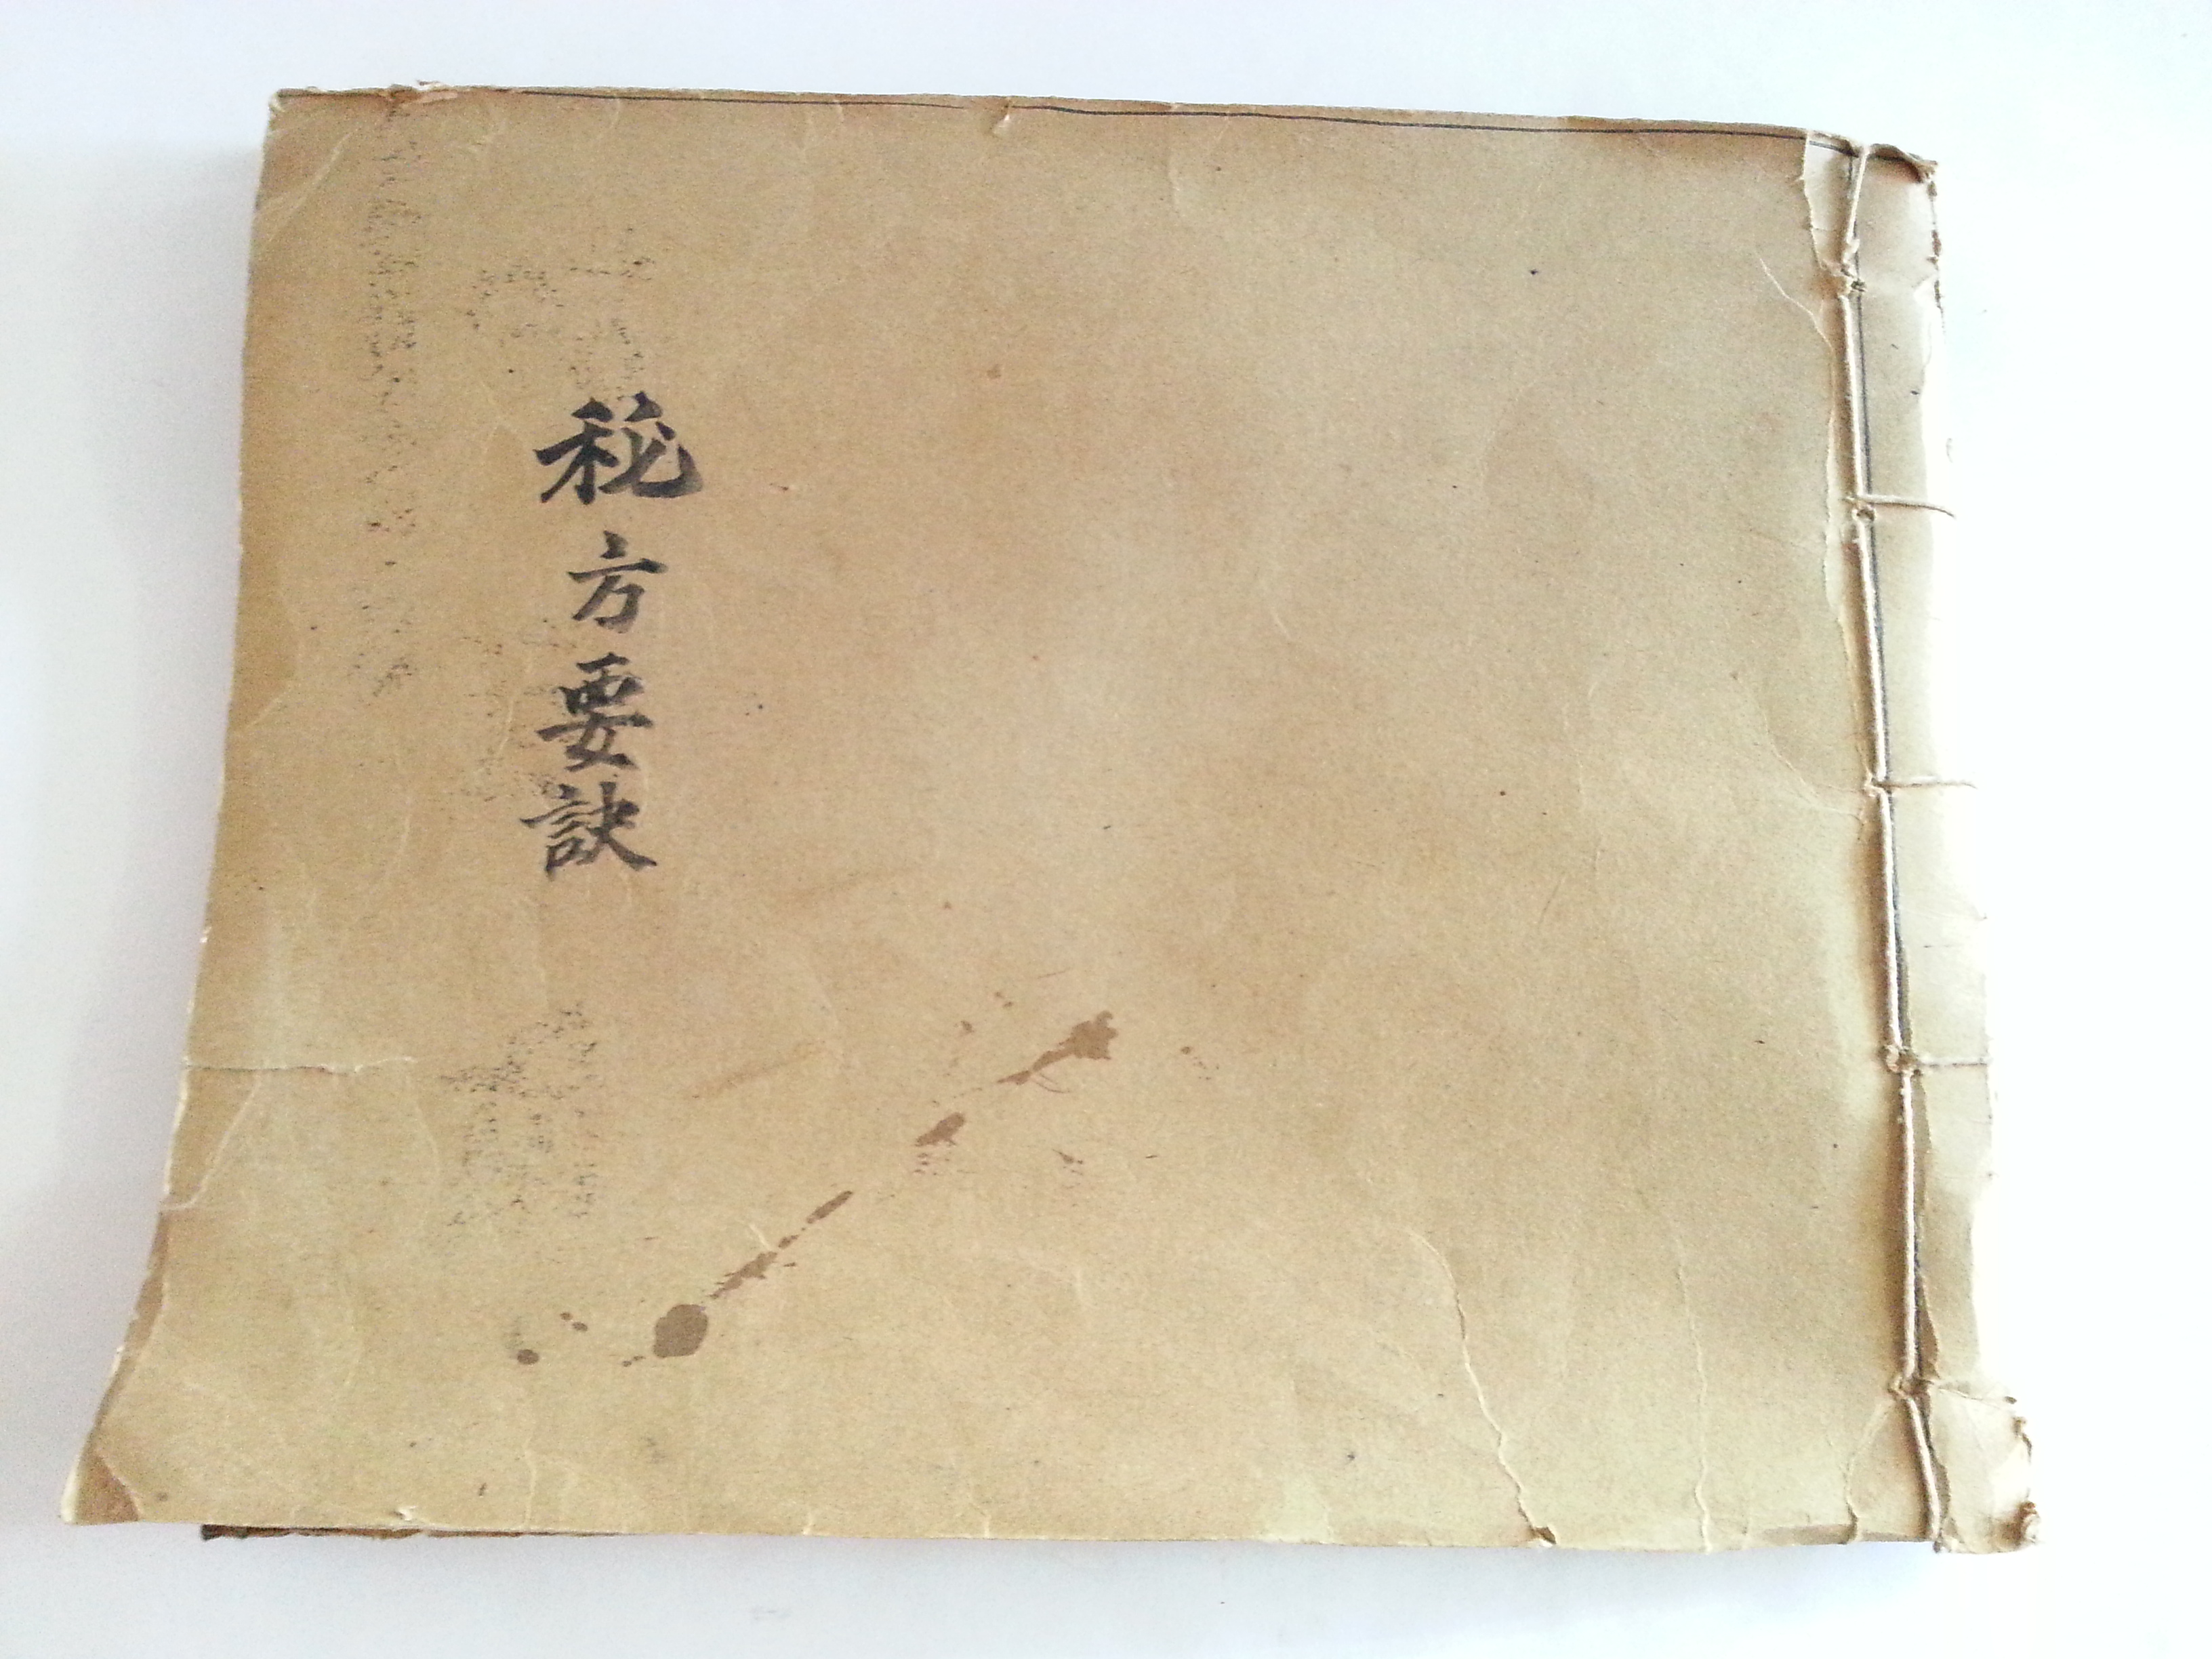 秘方要訣